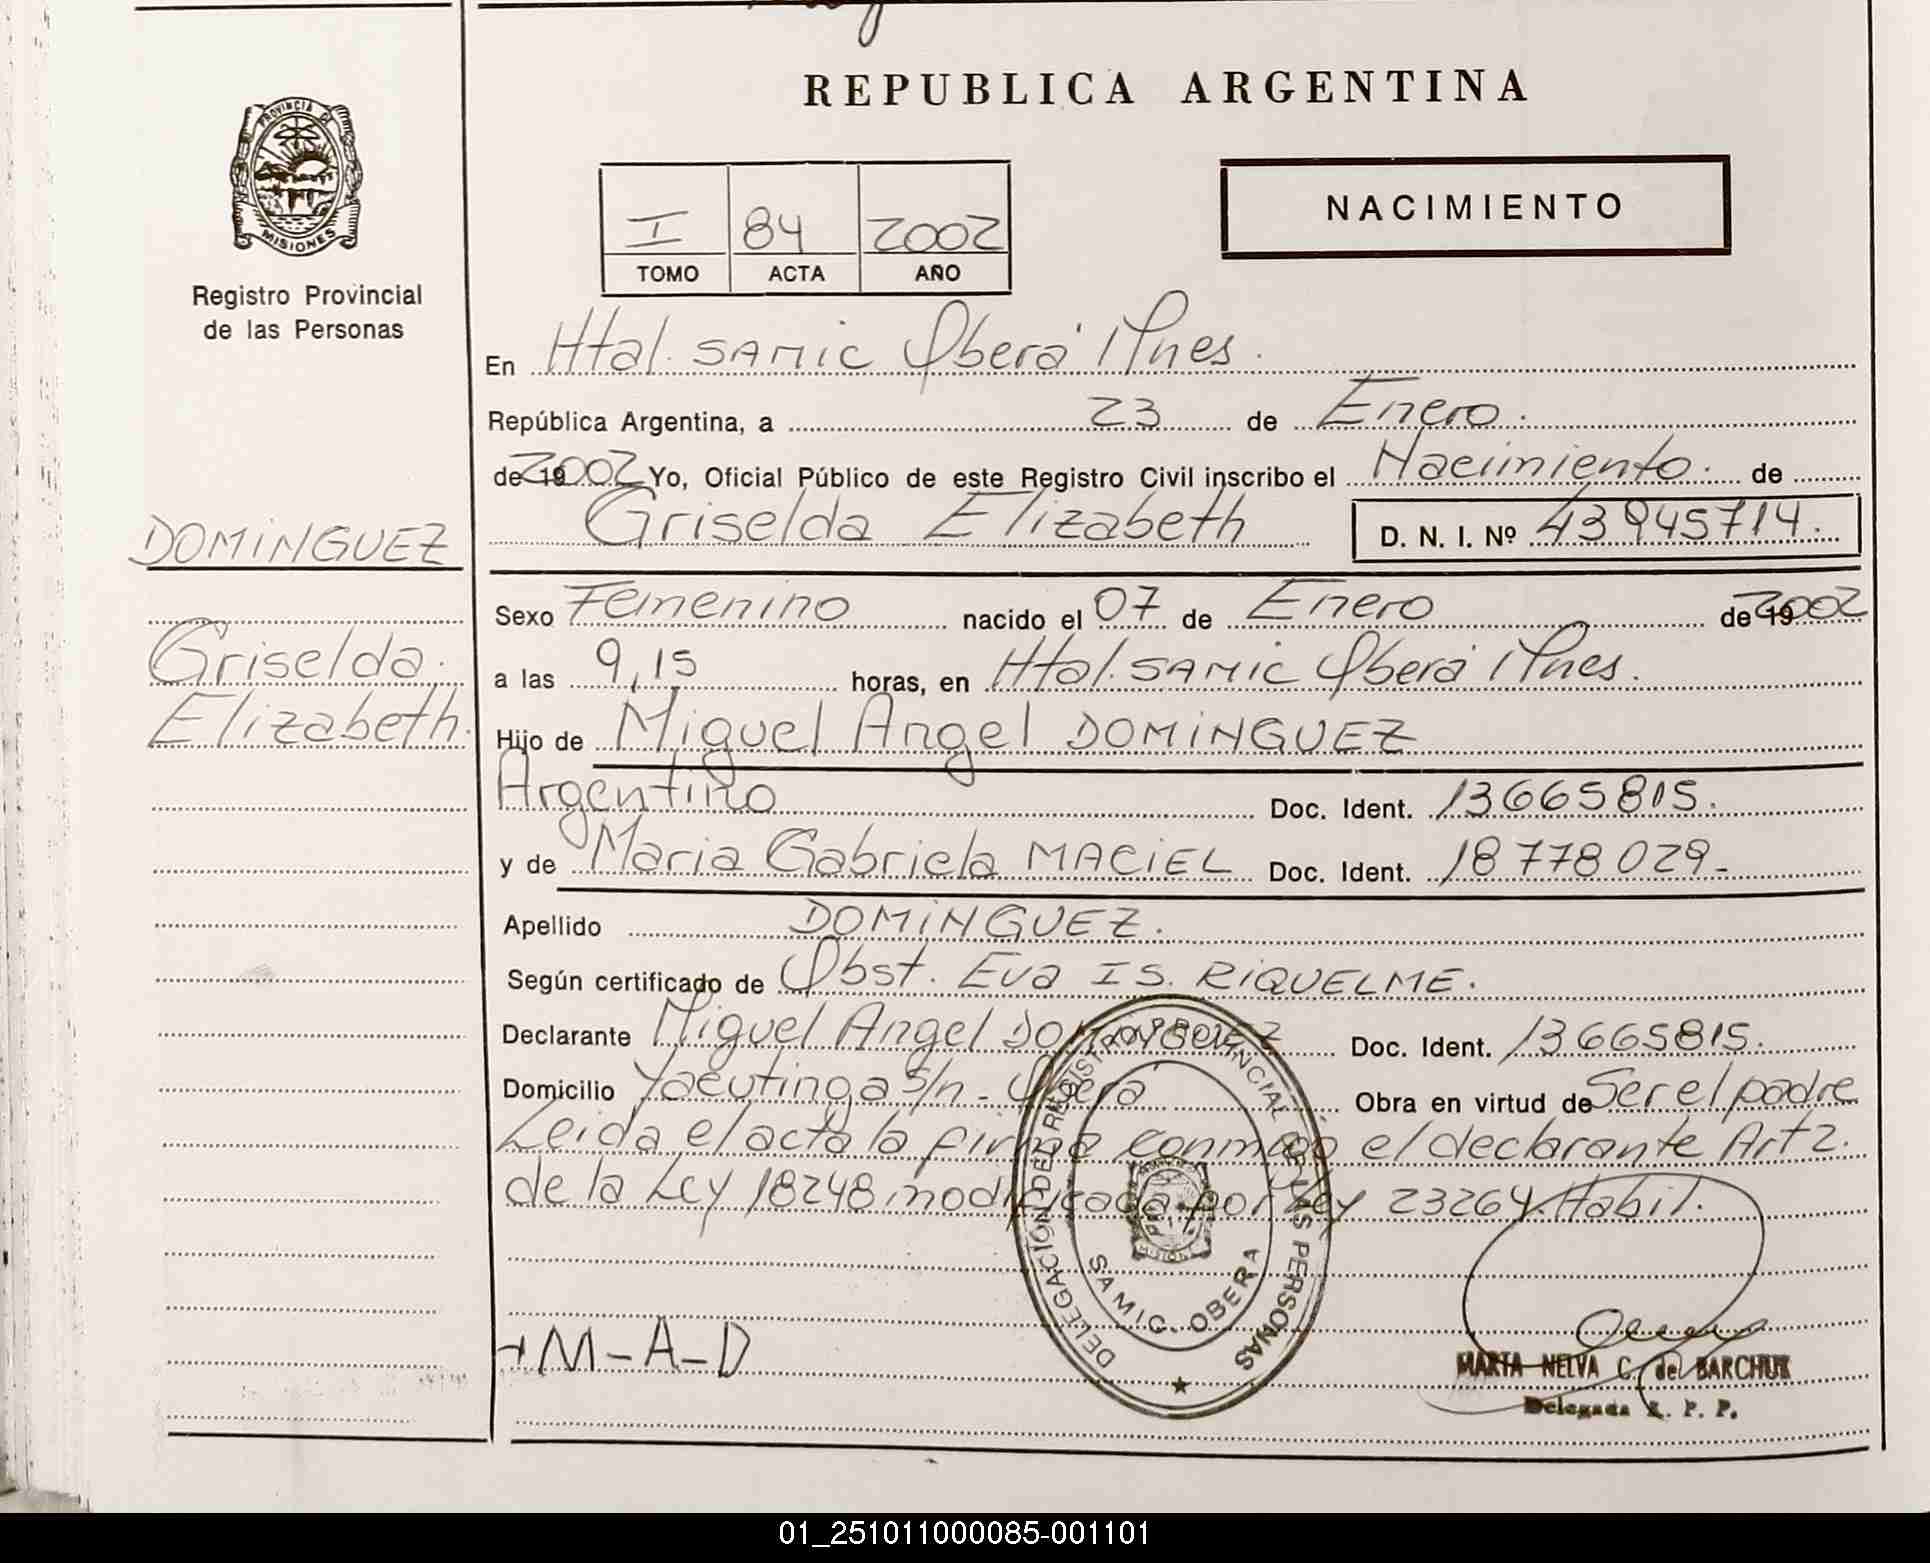 REPUBLICA ARGENTINA
PROVINCIA DE
MISIONES
Registro Provincial
de las Personas
I 84 2002
TOMO ACTA AÑO
NACIMIENTO
En Htal. SAMIC Oberá Mnes.
República Argentina, a 23 de Enero.
de 19 2002 Yo, Oficial Público de este Registro Civil inscribo el Nacimiento. de
Griselda Elizabeth D. N. I. Nº 43945714.
DOMINGUEZ
Griselda.
Elizabeth.
Sexo Femenino nacido el 07 de Enero de 19 2002
a las 9,15 horas, en Htal. SAMIC Oberá Mnes.
Hijo de Miguel Angel DOMINGUEZ
Argentino Doc. Ident. 13665815.
y de Maria Gabriela MACIEL Doc. Ident. 18778029-
Apellido DOMINGUEZ.
Según certificado de Obst. Eva IS. RIQUELME.
Declarante Miguel Angel DOMINGUEZ Doc. Ident. 13665815.
Domicilio Yacutinga S/n - Oberá Obra en virtud de Ser el padre
Leida el acta la firma conmigo el declarante Art 2.
de la Ley 18248 modificada por Ley 23264. Habil.
DELEGACION DEL REGISTRO PROVINCIAL DE LAS PERSONAS
SAMIC. OBERA
MISIONES
M-A-D
MARTA NELVA C. de BARCHUK
Delegada R. P. P.
01_251011000085-001101